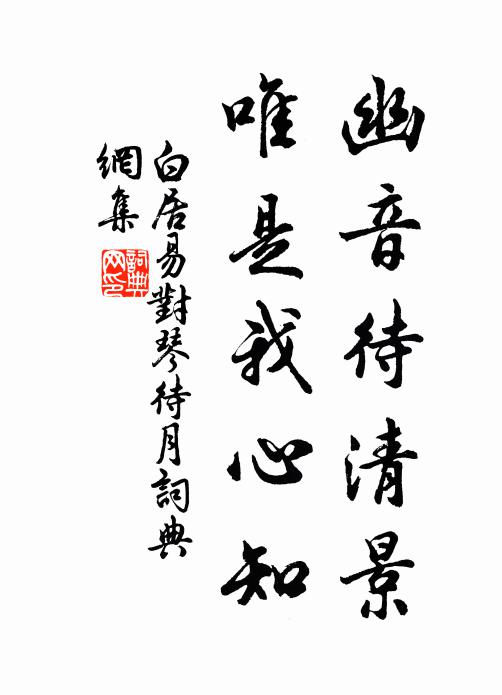 幽音待清景
唯是我心知
白居易對琴待月詞典
網集
詞典
网印